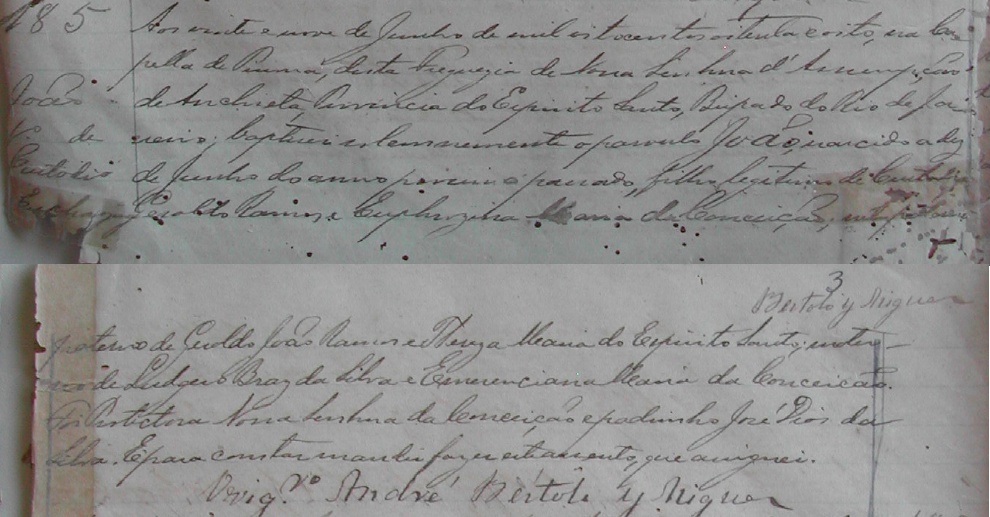 185
João
f.º de
Custodio
Aos vinte e nove de Junho de mil oitocentos oitenta e oito, na Ca-
pella de Piuma, desta Freguezia de Nossa Senhora d'Assumpção
de Anchieta, Provincia do Espirito Santo, Bispado do Rio de Ja-
neiro; baptizei solemnemente o parvulo João, nascido a dez
de Junho do anno proximo passado, filho legitimo de Custodio
Geraldo Ramos e Euphrozina Maria da Conceição; neto
3
Bertoli y Miguez
paterno de Geraldo João Ramos e Thereza Maria do Espirito Santo; mater-
no de Ludgero Braz da Silva e Emerenciana Maria da Conceição.
Foi Protectora Nossa Senhora da Conceição e padrinho José Dios da
Silva. E para constar mandei fazer este assento, que assignei.
Vig.ro André Bertoli y Miguez